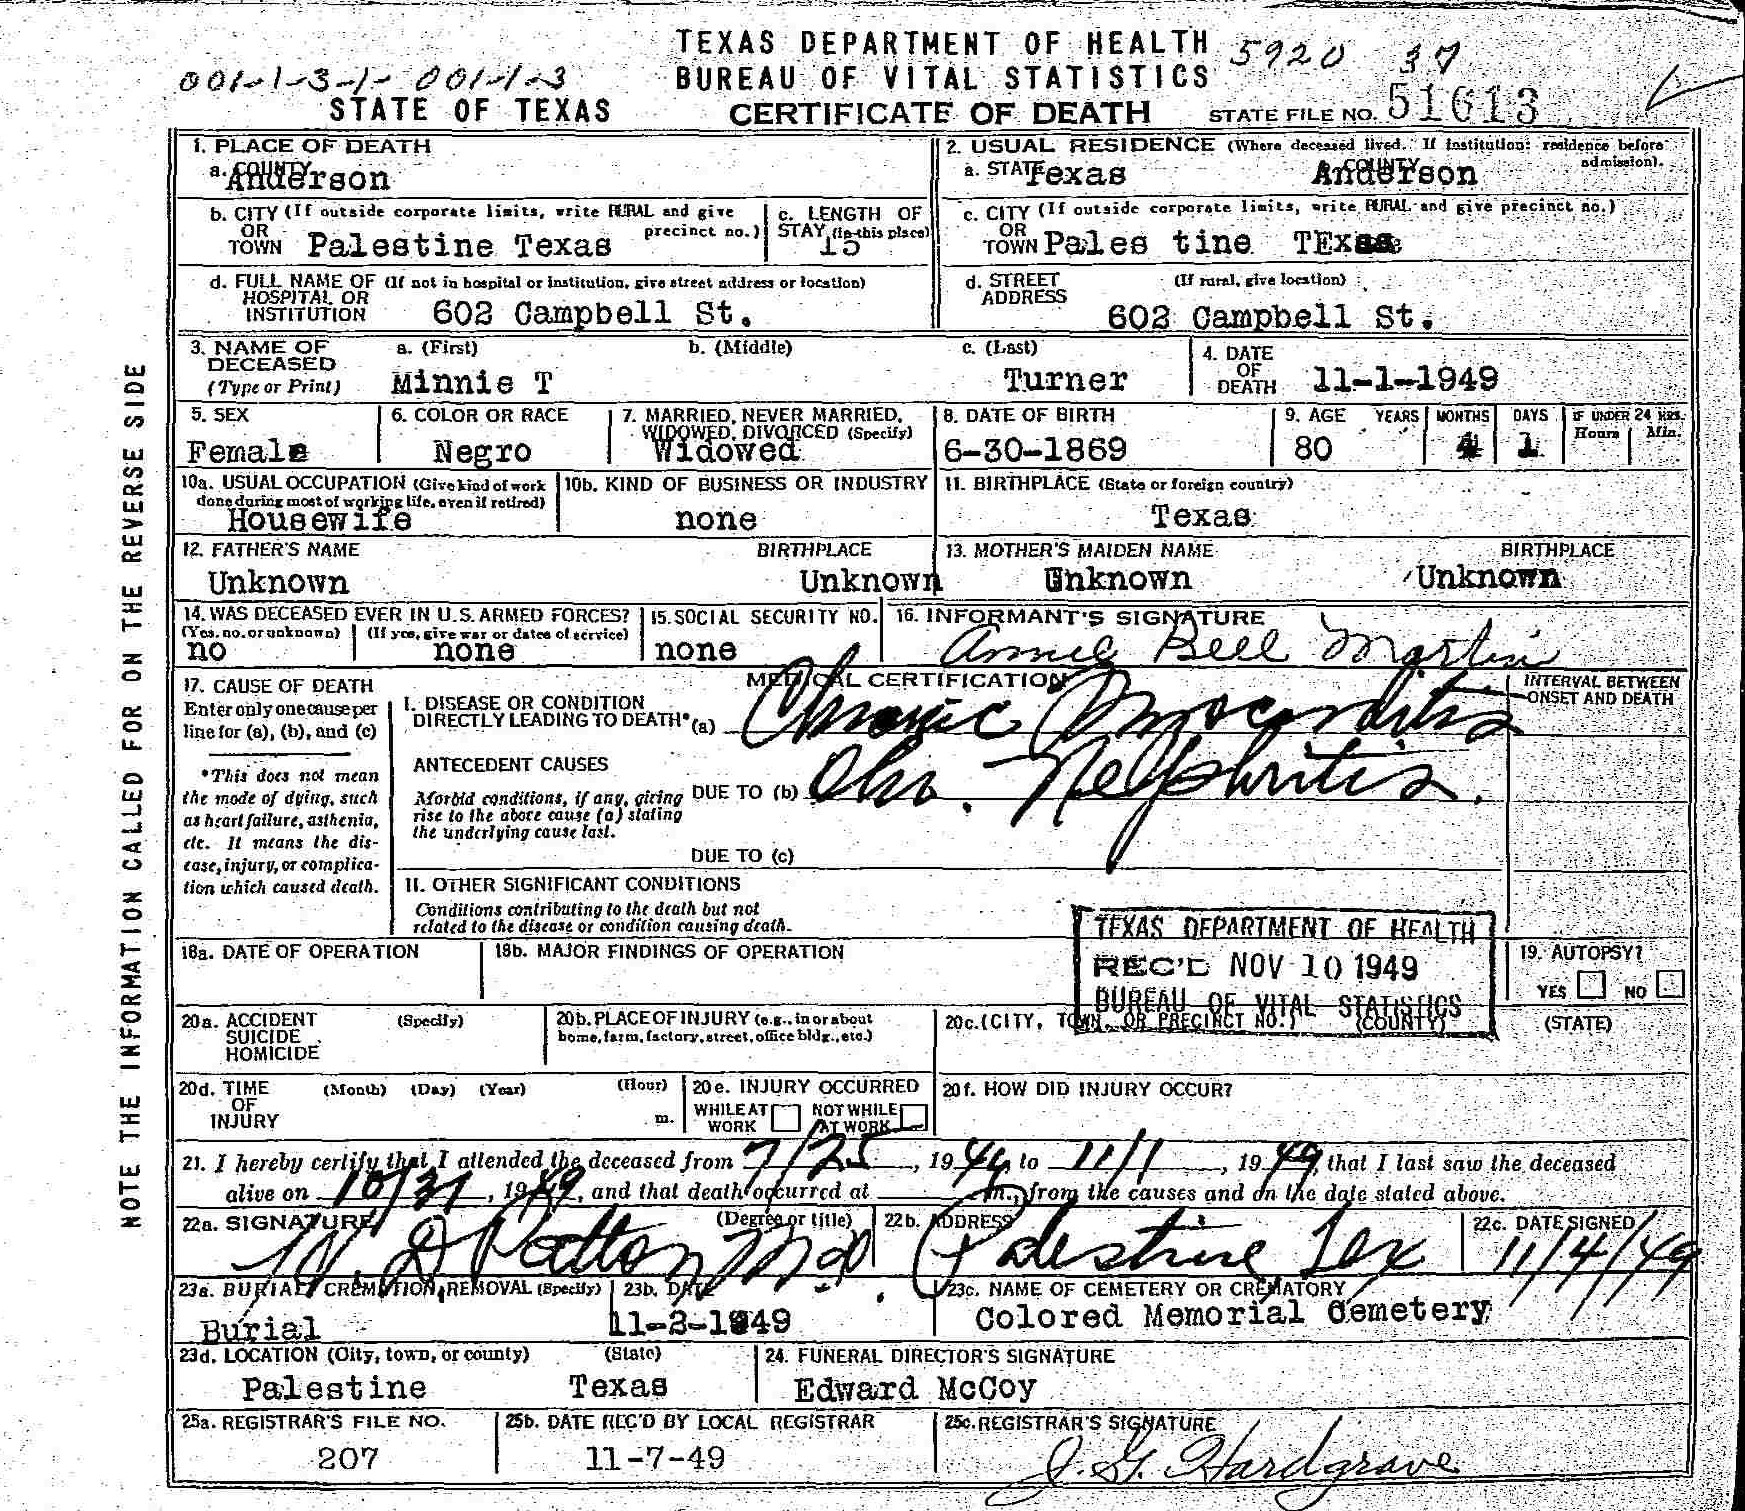 TEXAS DEPARTMENT OF HEALTH 5920 37
001-1-3-1- 001-1-3 BUREAU OF VITAL STATISTICS
STATE OF TEXAS CERTIFICATE OF DEATH STATE FILE NO. 51613
1. PLACE OF DEATH
a. COUNTY Anderson
2. USUAL RESIDENCE (Where deceased lived. If institution: residence before admission).
a. STATE Texas COUNTY Anderson
b. CITY (If outside corporate limits, write RURAL and give precinct no.)
OR
TOWN Palestine Texas
c. LENGTH OF
STAY (in this place)
15
c. CITY (If outside corporate limits, write RURAL and give precinct no.)
OR
TOWN Pales tine TExas
d. FULL NAME OF (If not in hospital or institution, give street address or location)
HOSPITAL OR
INSTITUTION 602 Campbell St.
d. STREET (If rural, give location)
ADDRESS
602 Campbell St.
3. NAME OF DECEASED (Type or Print)
a. (First) b. (Middle) c. (Last)
Minnie T Turner
4. DATE OF DEATH 11-1-1949
5. SEX
Female
6. COLOR OR RACE
Negro
7. MARRIED, NEVER MARRIED, WIDOWED, DIVORCED (Specify)
Widowed
8. DATE OF BIRTH
6-30-1869
9. AGE YEARS MONTHS DAYS IF UNDER 24 HRS. Hours Min.
80 4 1
10a. USUAL OCCUPATION (Give kind of work
done during most of working life, even if retired)
Housewife
10b. KIND OF BUSINESS OR INDUSTRY
none
11. BIRTHPLACE (State or foreign country)
Texas
12. FATHER'S NAME BIRTHPLACE
Unknown Unknown
13. MOTHER'S MAIDEN NAME BIRTHPLACE
Unknown Unknown
14. WAS DECEASED EVER IN U.S. ARMED FORCES?
(Yes, no, or unknown) (If yes, give war or dates of service)
no none
15. SOCIAL SECURITY NO.
none
16. INFORMANT'S SIGNATURE
Annie Bell Martin
MEDICAL CERTIFICATION
17. CAUSE OF DEATH
Enter only one cause per
line for (a), (b), and (c)
*This does not mean
the mode of dying, such
as heart failure, asthenia,
etc. It means the dis-
ease, injury, or complica-
tion which caused death.
I. DISEASE OR CONDITION
DIRECTLY LEADING TO DEATH* (a) Chronic Myocarditis
ANTECEDENT CAUSES
Morbid conditions, if any, giving
rise to the above cause (a) stating
the underlying cause last.
DUE TO (b) Chr. Nephritis.
DUE TO (c)
II. OTHER SIGNIFICANT CONDITIONS
Conditions contributing to the death but not
related to the disease or condition causing death.
INTERVAL BETWEEN
ONSET AND DEATH
TEXAS DEPARTMENT OF HEALTH
REC'D NOV 10 1949
BUREAU OF VITAL STATISTICS
18a. DATE OF OPERATION
18b. MAJOR FINDINGS OF OPERATION
19. AUTOPSY?
YES NO
20a. ACCIDENT (Specify)
SUICIDE
HOMICIDE
20b. PLACE OF INJURY (e.g., in or about
home, farm, factory, street, office bldg., etc.)
20c. (CITY, TOWN, OR PRECINCT NO.) (COUNTY) (STATE)
20d. TIME (Month) (Day) (Year) (Hour)
OF
INJURY m.
20e. INJURY OCCURRED
WHILE AT WORK NOT WHILE AT WORK
20f. HOW DID INJURY OCCUR?
21. I hereby certify that I attended the deceased from 7/25, 1944, to 11/1, 1949, that I last saw the deceased
alive on 10/31, 1949, and that death occurred at m., from the causes and on the date stated above.
22a. SIGNATURE (Degree or title)
Patton MD.
22b. ADDRESS
Palestine Tex
22c. DATE SIGNED
11/4/49
23a. BURIAL, CREMATION, REMOVAL (Specify)
Burial
23b. DATE
11-3-1949
23c. NAME OF CEMETERY OR CREMATORY
Colored Memorial Cemetery
23d. LOCATION (City, town, or county) (State)
Palestine Texas
24. FUNERAL DIRECTOR'S SIGNATURE
Edward McCoy
25a. REGISTRAR'S FILE NO.
207
25b. DATE REC'D BY LOCAL REGISTRAR
11-7-49
25c. REGISTRAR'S SIGNATURE
J. G. Hardgrave
NOTE THE INFORMATION CALLED FOR ON THE REVERSE SIDE